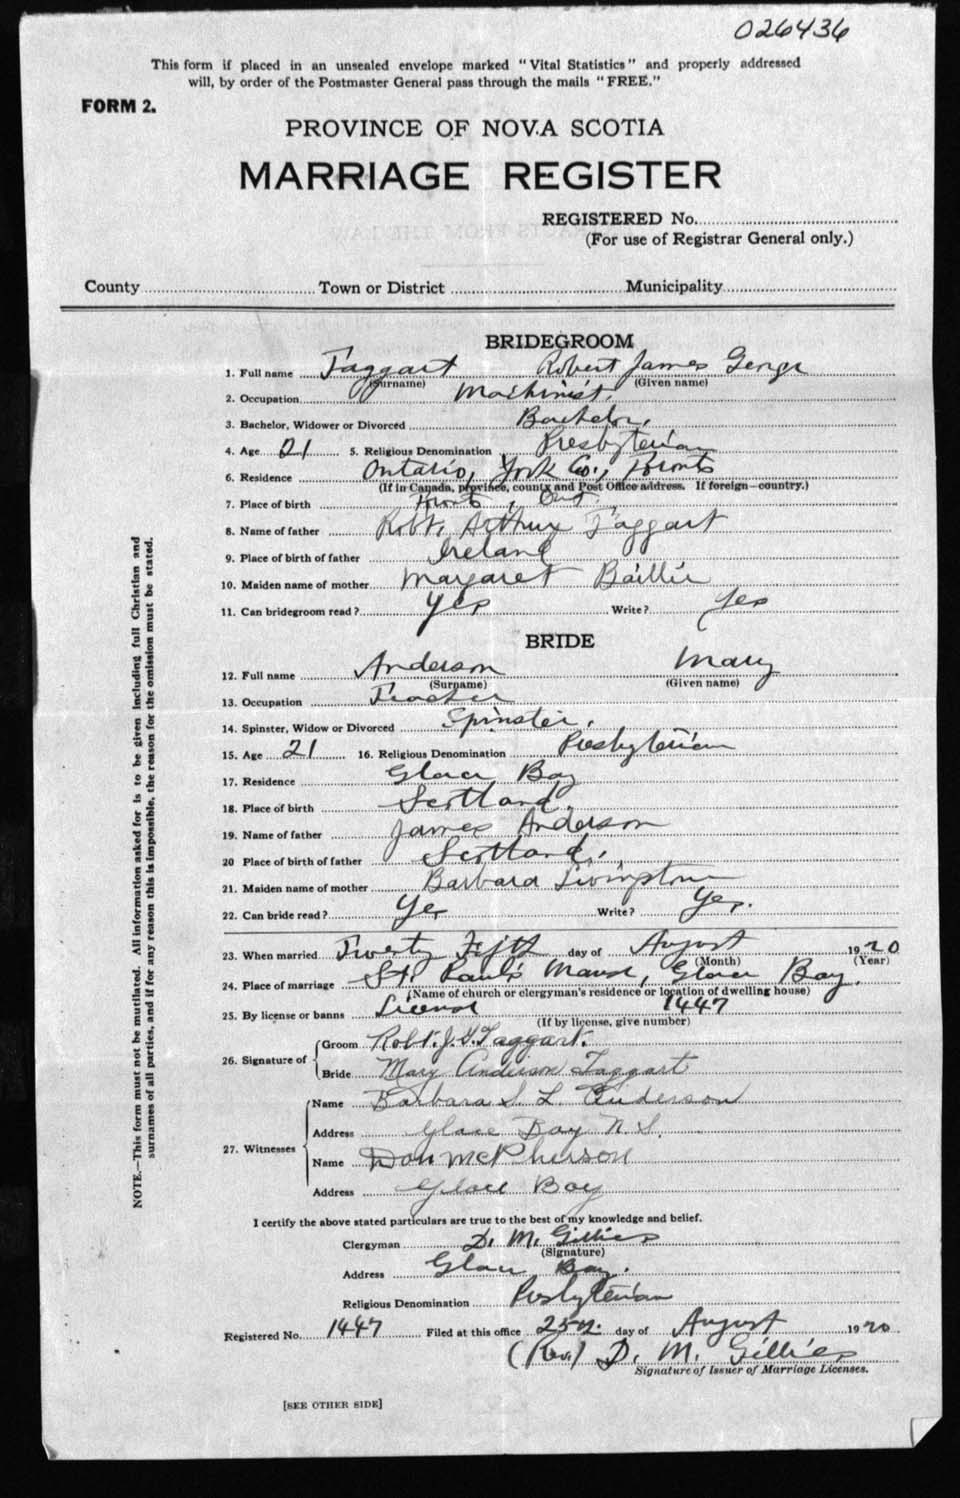 026436
This form if placed in an unsealed envelope marked "Vital Statistics" and properly addressed
will, by order of the Postmaster General pass through the mails "FREE."
FORM 2.
PROVINCE OF NOVA SCOTIA
MARRIAGE REGISTER
REGISTERED No.
(For use of Registrar General only.)
County Town or District Municipality
BRIDEGROOM
1. Full name Taggart Robert James George
(Surname) (Given name)
2. Occupation Machinist.
3. Bachelor, Widower or Divorced Bachelor.
4. Age 21 5. Religious Denomination Presbyterian
6. Residence Ontario, York Co., Toronto
(If in Canada, province, county and Post Office address. If foreign—country.)
7. Place of birth Toronto, Ont.
8. Name of father Robt. Arthur Taggart
9. Place of birth of father Ireland
10. Maiden name of mother Margaret Baillie
11. Can bridegroom read? Yes Write? Yes
BRIDE
12. Full name Anderson Mary
(Surname) (Given name)
13. Occupation Teacher
14. Spinster, Widow or Divorced Spinster.
15. Age 21 16. Religious Denomination Presbyterian
17. Residence Glace Bay
18. Place of birth Scotland.
19. Name of father James Anderson
20 Place of birth of father Scotland.
21. Maiden name of mother Barbara Livingstone
22. Can bride read? Yes Write? Yes.
23. When married Twenty Fifth day of August 1920
(Month) (Year)
24. Place of marriage St. Paul's Manse, Glace Bay.
(Name of church or clergyman's residence or location of dwelling house)
25. By license or banns License 1447
(If by license, give number)
26. Signature of Groom Robt. J. G. Taggart.
Bride Mary Anderson Taggart
27. Witnesses Name Barbara S. L. Anderson
Address Glace Bay N.S.
Name Dan McPherson
Address Glace Bay
I certify the above stated particulars are true to the best of my knowledge and belief.
Clergyman D. M. Gillies
(Signature)
Address Glace Bay.
Religious Denomination Presbyterian
Registered No. 1447 Filed at this office 25th. day of August 1920
(Rev.) D. M. Gillies
Signature of Issuer of Marriage Licenses.
[SEE OTHER SIDE]
NOTE.—This form must not be mutilated. All information asked for is to be given including full Christian and
surnames of all parties, and if for any reason this is impossible, the reason for the omission must be stated.